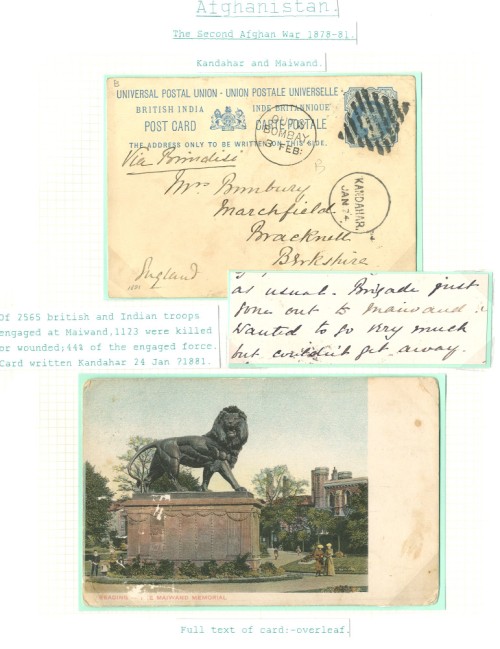 Afghanistan.
The Second Afghan War 1878-81.
Kandahar and Maiwand.
B
UNIVERSAL POSTAL UNION - UNION POSTALE UNIVERSELLE
BRITISH INDIA INDE BRITANNIQUE
POST CARD CARTE POSTALE
THE ADDRESS ONLY TO BE WRITTEN ON THIS SIDE.
BOMBAY
FEB
Via Brindisi
B
KANDAHAR.
JAN 24
Mrs Bunbury
Marchfield
Bracknell
Berkshire
England
as usual. Brigade just
gone out to Maiwand
wanted to go very much
but couldn't get away.
Of 2565 british and Indian troops
engaged at Maiwand,1123 were killed
or wounded;44% of the engaged force.
Card written Kandahar 24 Jan ?1881.
MAIWAND MEMORIAL
Full text of card:-overleaf.